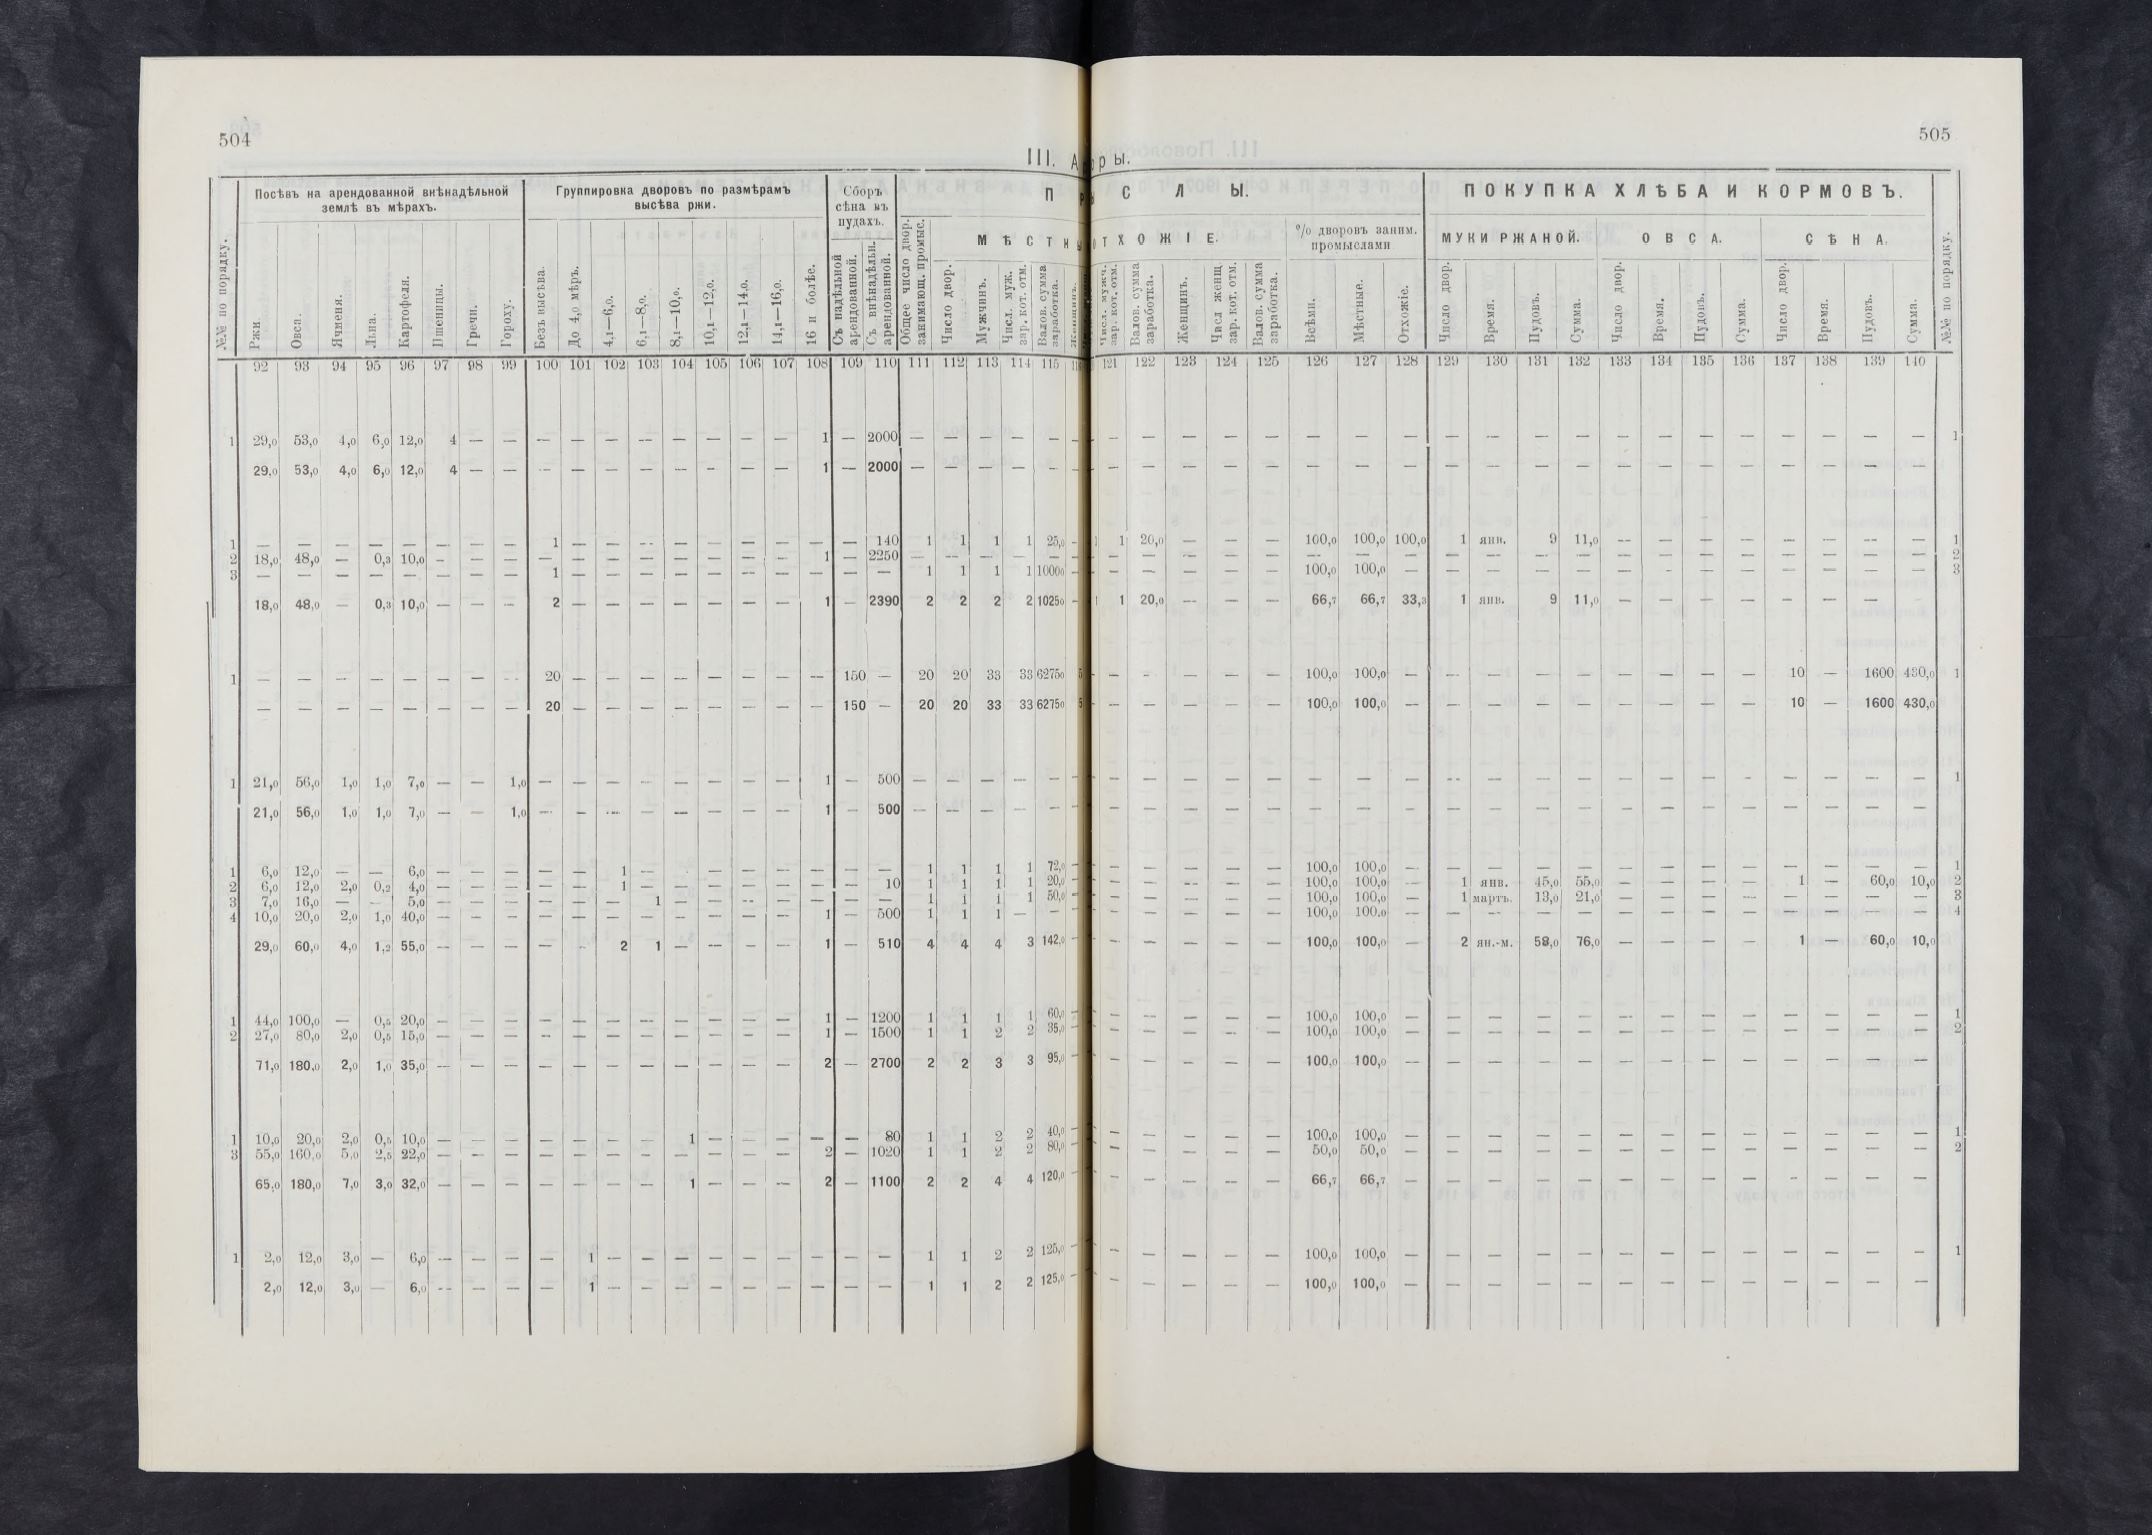 504
505
III. А
ры.
№№ по порядку.
Посѣвъ на арендованной внѣнадѣльной землѣ въ мѣрахъ.
Группировка дворовъ по размѣрамъ высѣва ржи.
Сборъ сѣна въ пудахъ.
П
С Л Ы.
ПОКУПКА ХЛѢБА И КОРМОВЪ.
Общее число двор. занимающ. промыс.
МѢСТН
ОТХОЖІЕ.
% дворовъ заним. промыслами
МУКИ РЖАНОЙ.
ОВСА.
СѢНА.
№№ по порядку.
Ржи. Овса. Ячменя. Льна. Картофеля. Пшеницы. Гречи. Гороху.
Безъ высѣва. До 4,0 мѣръ. 4,1—6,0. 6,1—8,0. 8,1—10,0. 10,1—12,0. 12,1—14,0. 14,1—16,0. 16 и болѣе.
Съ надѣльной арендованной. Съ внѣнадѣльн. арендованной.
Число двор. Мужчинъ. Числ. муж. зар. кот. отм. Валов. сумма заработка. Женщинъ.
Числ. мужч. зар. кот. отм. Валов. сумма заработка. Женщинъ. Числ женщ. зар. кот. отм. Валов. сумма заработка.
Всѣми. Мѣстные. Отхожіе.
Число двор. Время. Пудовъ. Сумма. Число двор. Время. Пудовъ. Сумма. Число двор. Время. Пудовъ. Сумма.
92 93 94 95 96 97 98 99 100 101 102 103 104 105 106 107 108 109 110 111 112 113 114 115 121 122 123 124 125 126 127 128 129 130 131 132 133 134 135 136 137 138 139 140
1 29,0 53,0 4,0 6,0 12,0 4 — — — — — — — — — — 1 — 2000 — — — — — — — — — — — — — — — — — — — — — — — — — — 1
29,0 53,0 4,0 6,0 12,0 4 — — — — — — — — — — 1 — 2000 — — — — — — — — — — — — — — — — — — — — — — — — — —
1 — — — — — — — — 1 — — — — — — — — — 140 1 1 1 1 25,0 — 1 20,0 — — — 100,0 100,0 100,0 1 янв. 9 11,0 — — — — — — — — 1
2 18,0 48,0 — 0,3 10,0 — — — — — — — — — — — 1 — 2250 — — — — — — — — — — — — — — — — — — — — — — — — — — 2
3 — — — — — — — — 1 — — — — — — — — — — 1 1 1 1 1000 — — — — — — 100,0 100,0 — — — — — — — — — — — — — 3
18,0 48,0 — 0,3 10,0 — — — 2 — — — — — — — 1 — 2390 2 2 2 2 1025,0 — 1 20,0 — — — 66,7 66,7 33,3 1 янв. 9 11,0 — — — — — — — —
1 — — — — — — — — 20 — — — — — — — — 150 — 20 20 33 33 6275,0 5 — — — — — 100,0 100,0 — — — — — — — — — 10 — 1600 430,0 1
— — — — — — — — 20 — — — — — — — — 150 — 20 20 33 33 6275,0 5 — — — — — 100,0 100,0 — — — — — — — — — 10 — 1600 430,0
1 21,0 56,0 1,0 1,0 7,0 — — 1,0 — — — — — — — — 1 — 500 — — — — — — — — — — — — — — — — — — — — — — — — — — 1
21,0 56,0 1,0 1,0 7,0 — — 1,0 — — — — — — — — 1 — 500 — — — — — — — — — — — — — — — — — — — — — — — — — —
1 6,0 12,0 — — 6,0 — — — — — 1 — — — — — — — — 1 1 1 1 72,0 — — — — — — 100,0 100,0 — — — — — — — — — — — — — 1
2 6,0 12,0 2,0 0,2 4,0 — — — — — 1 — — — — — — — 10 1 1 1 1 20,0 — — — — — — 100,0 100,0 — 1 янв. 45,0 55,0 — — — — 1 — 60,0 10,0 2
3 7,0 16,0 — — 5,0 — — — — — — 1 — — — — — — — 1 1 1 1 50,0 — — — — — — 100,0 100,0 — 1 мартъ. 13,0 21,0 — — — — — — — — 3
4 10,0 20,0 2,0 1,0 40,0 — — — — — — — — — — — 1 — 500 1 1 1 — — — — — — — — 100,0 100,0 — — — — — — — — — — — — — 4
29,0 60,0 4,0 1,2 55,0 — — — — — 2 1 — — — — 1 — 510 4 4 4 3 142,0 — — — — — — 100,0 100,0 — 2 ян.-м. 58,0 76,0 — — — — 1 — 60,0 10,0
1 44,0 100,0 — 0,5 20,0 — — — — — — — — — — — 1 — 1200 1 1 1 1 60,0 — — — — — — 100,0 100,0 — — — — — — — — — — — — — 1
2 27,0 80,0 2,0 0,5 15,0 — — — — — — — — — — — 1 — 1500 1 1 2 2 35,0 — — — — — — 100,0 100,0 — — — — — — — — — — — — — 2
71,0 180,0 2,0 1,0 35,0 — — — — — — — — — — — 2 — 2700 2 2 3 3 95,0 — — — — — — 100,0 100,0 — — — — — — — — — — — — —
1 10,0 20,0 2,0 0,5 10,0 — — — — — — — 1 — — — — — 80 1 1 2 2 40,0 — — — — — — 100,0 100,0 — — — — — — — — — — — — — 1
3 55,0 160,0 5,0 2,5 22,0 — — — — — — — — — — — 2 — 1020 1 1 2 2 80,0 — — — — — — 50,0 50,0 — — — — — — — — — — — — — 2
65,0 180,0 7,0 3,0 32,0 — — — — — — — 1 — — — 2 — 1100 2 2 4 4 120,0 — — — — — — 66,7 66,7 — — — — — — — — — — — — —
1 2,0 12,0 3,0 — 6,0 — — — — 1 — — — — — — — — — 1 1 2 2 125,0 — — — — — — 100,0 100,0 — — — — — — — — — — — — — 1
2,0 12,0 3,0 — 6,0 — — — — 1 — — — — — — — — — 1 1 2 2 125,0 — — — — — — 100,0 100,0 — — — — — — — — — — — — —